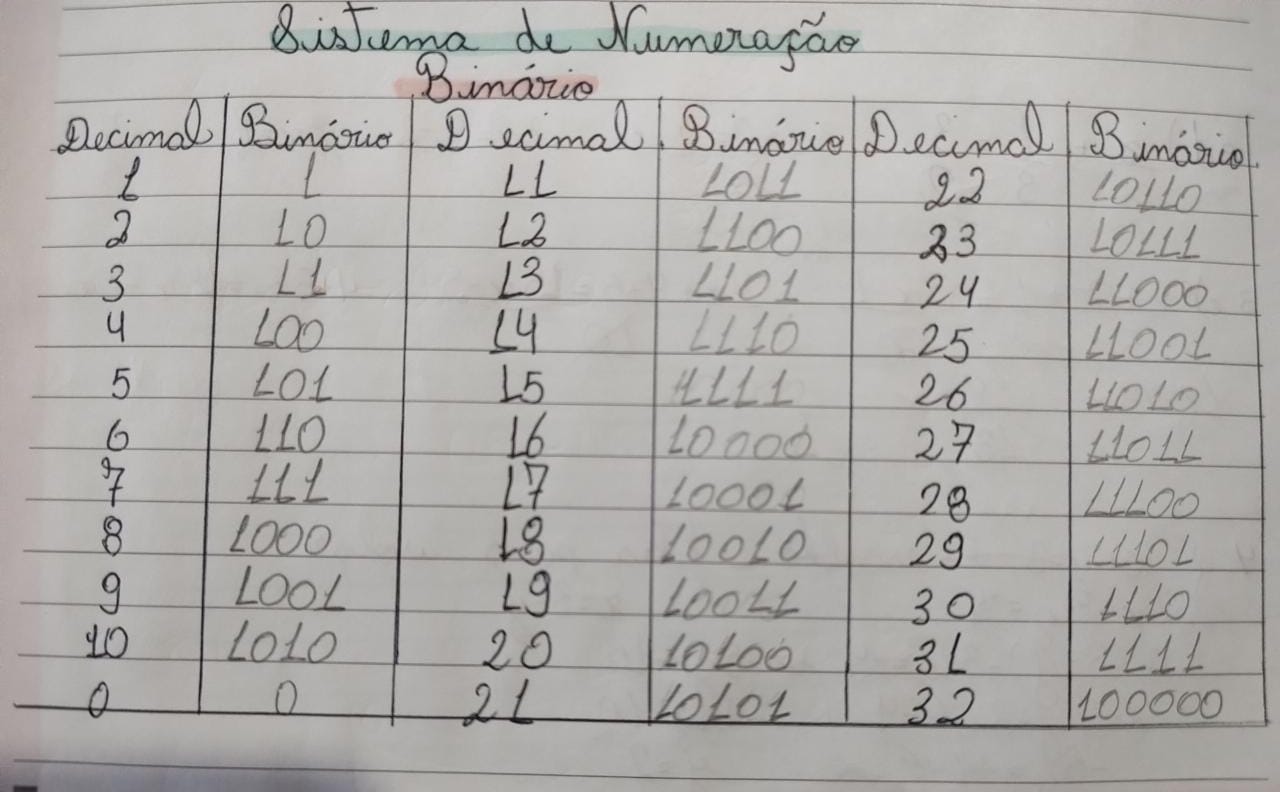 Sistema de Numeração
Binário
Decimal Binário Decimal Binário Decimal Binário
1 1 11 1011 22 10110
2 10 12 1100 23 10111
3 11 13 1101 24 11000
4 100 14 1110 25 11001
5 101 15 1111 26 11010
6 110 16 10000 27 11011
7 111 17 10001 28 11100
8 1000 18 10010 29 11101
9 1001 19 10011 30 1110
10 1010 20 10100 31 1111
0 0 21 10101 32 100000